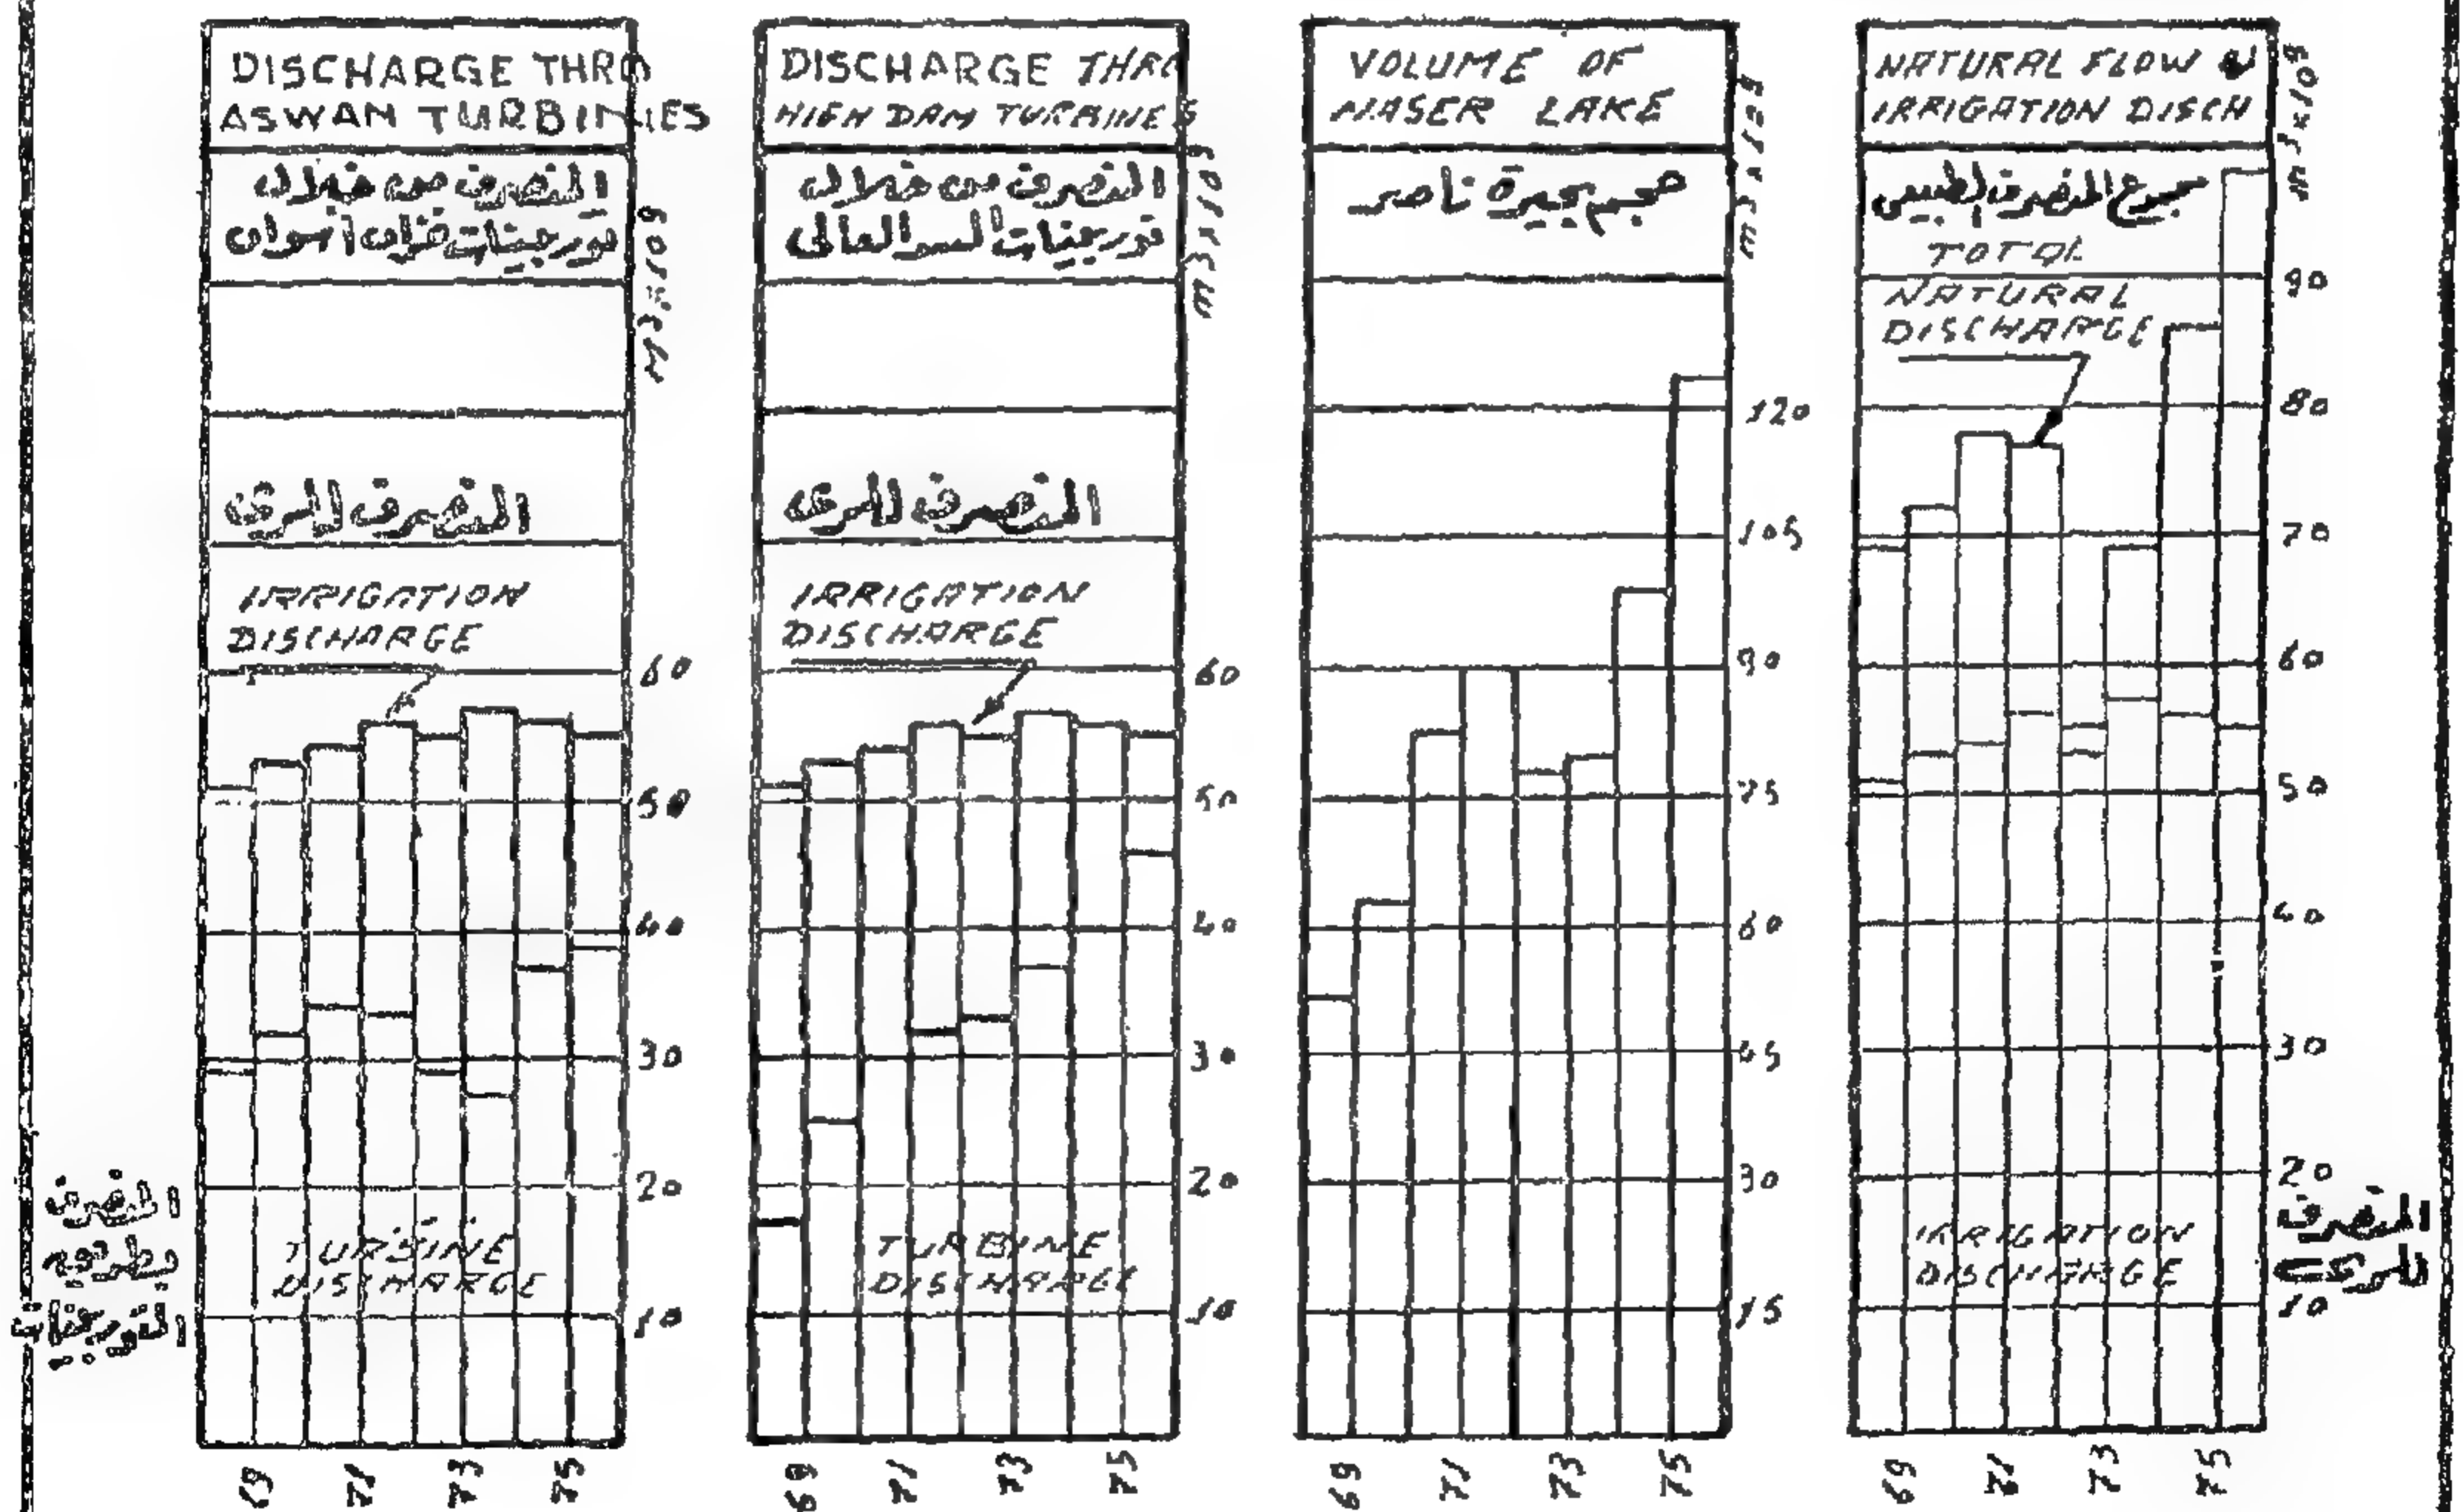 DISCHARGE THRO
ASWAN TURBINES
التصرف من خلال
توربينات خزان أسوان
M3x109
التصرف للرى
IRRIGATION
DISCHARGE
60
50
40
30
20
10
TURBINE
DISCHARGE
التصرف
بطريق
التوربينات
69
71
73
75
DISCHARGE THRO
HIGH DAM TURBINES
التصرف من خلال
توربينات السد العالى
m3x109
التصرف للرى
IRRIGATION
DISCHARGE
60
50
40
30
20
10
TURBINE
DISCHARGE
69
71
73
75
VOLUME OF
NASER LAKE
حجم بحيرة ناصر
m3x109
120
105
90
75
60
45
30
15
69
71
73
75
NATURAL FLOW
IRRIGATION DISCH
مجموع التصرف الطبيعى
m3x109
TOTAL
NATURAL
DISCHARGE
90
80
70
60
50
40
30
20
10
IRRIGATION
DISCHARGE
التصرف
للرى
69
71
73
75